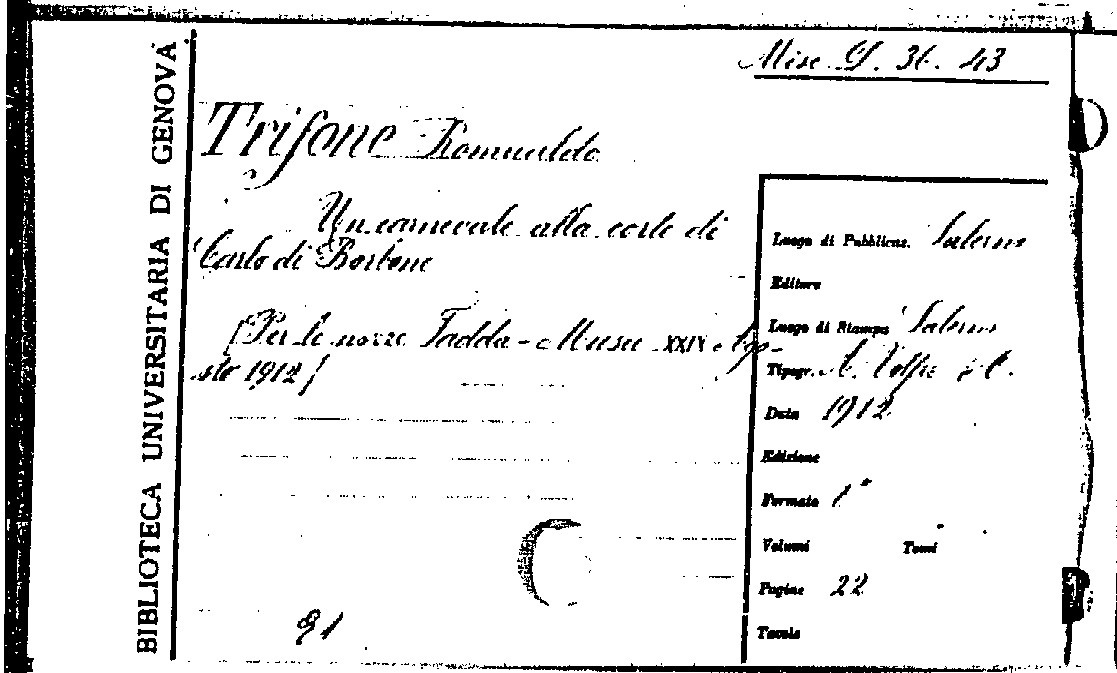 BIBLIOTECA UNIVERSITARIA DI GENOVA
Misc. G. 36. 43
Trifone Romualdo
Un carnevale alla corte di
Carlo di Borbone
[Per le nozze Fadda - Museu XXIX Ago-
sto 1912]
91
Luogo di Pubblicaz. Salerno
Editore
Luogo di Stampa Salerno
Tipogr. A. Volpe e C.
Data 1912
Edizione
Formato
Volumi Tomi
Pagine 22
Tavole